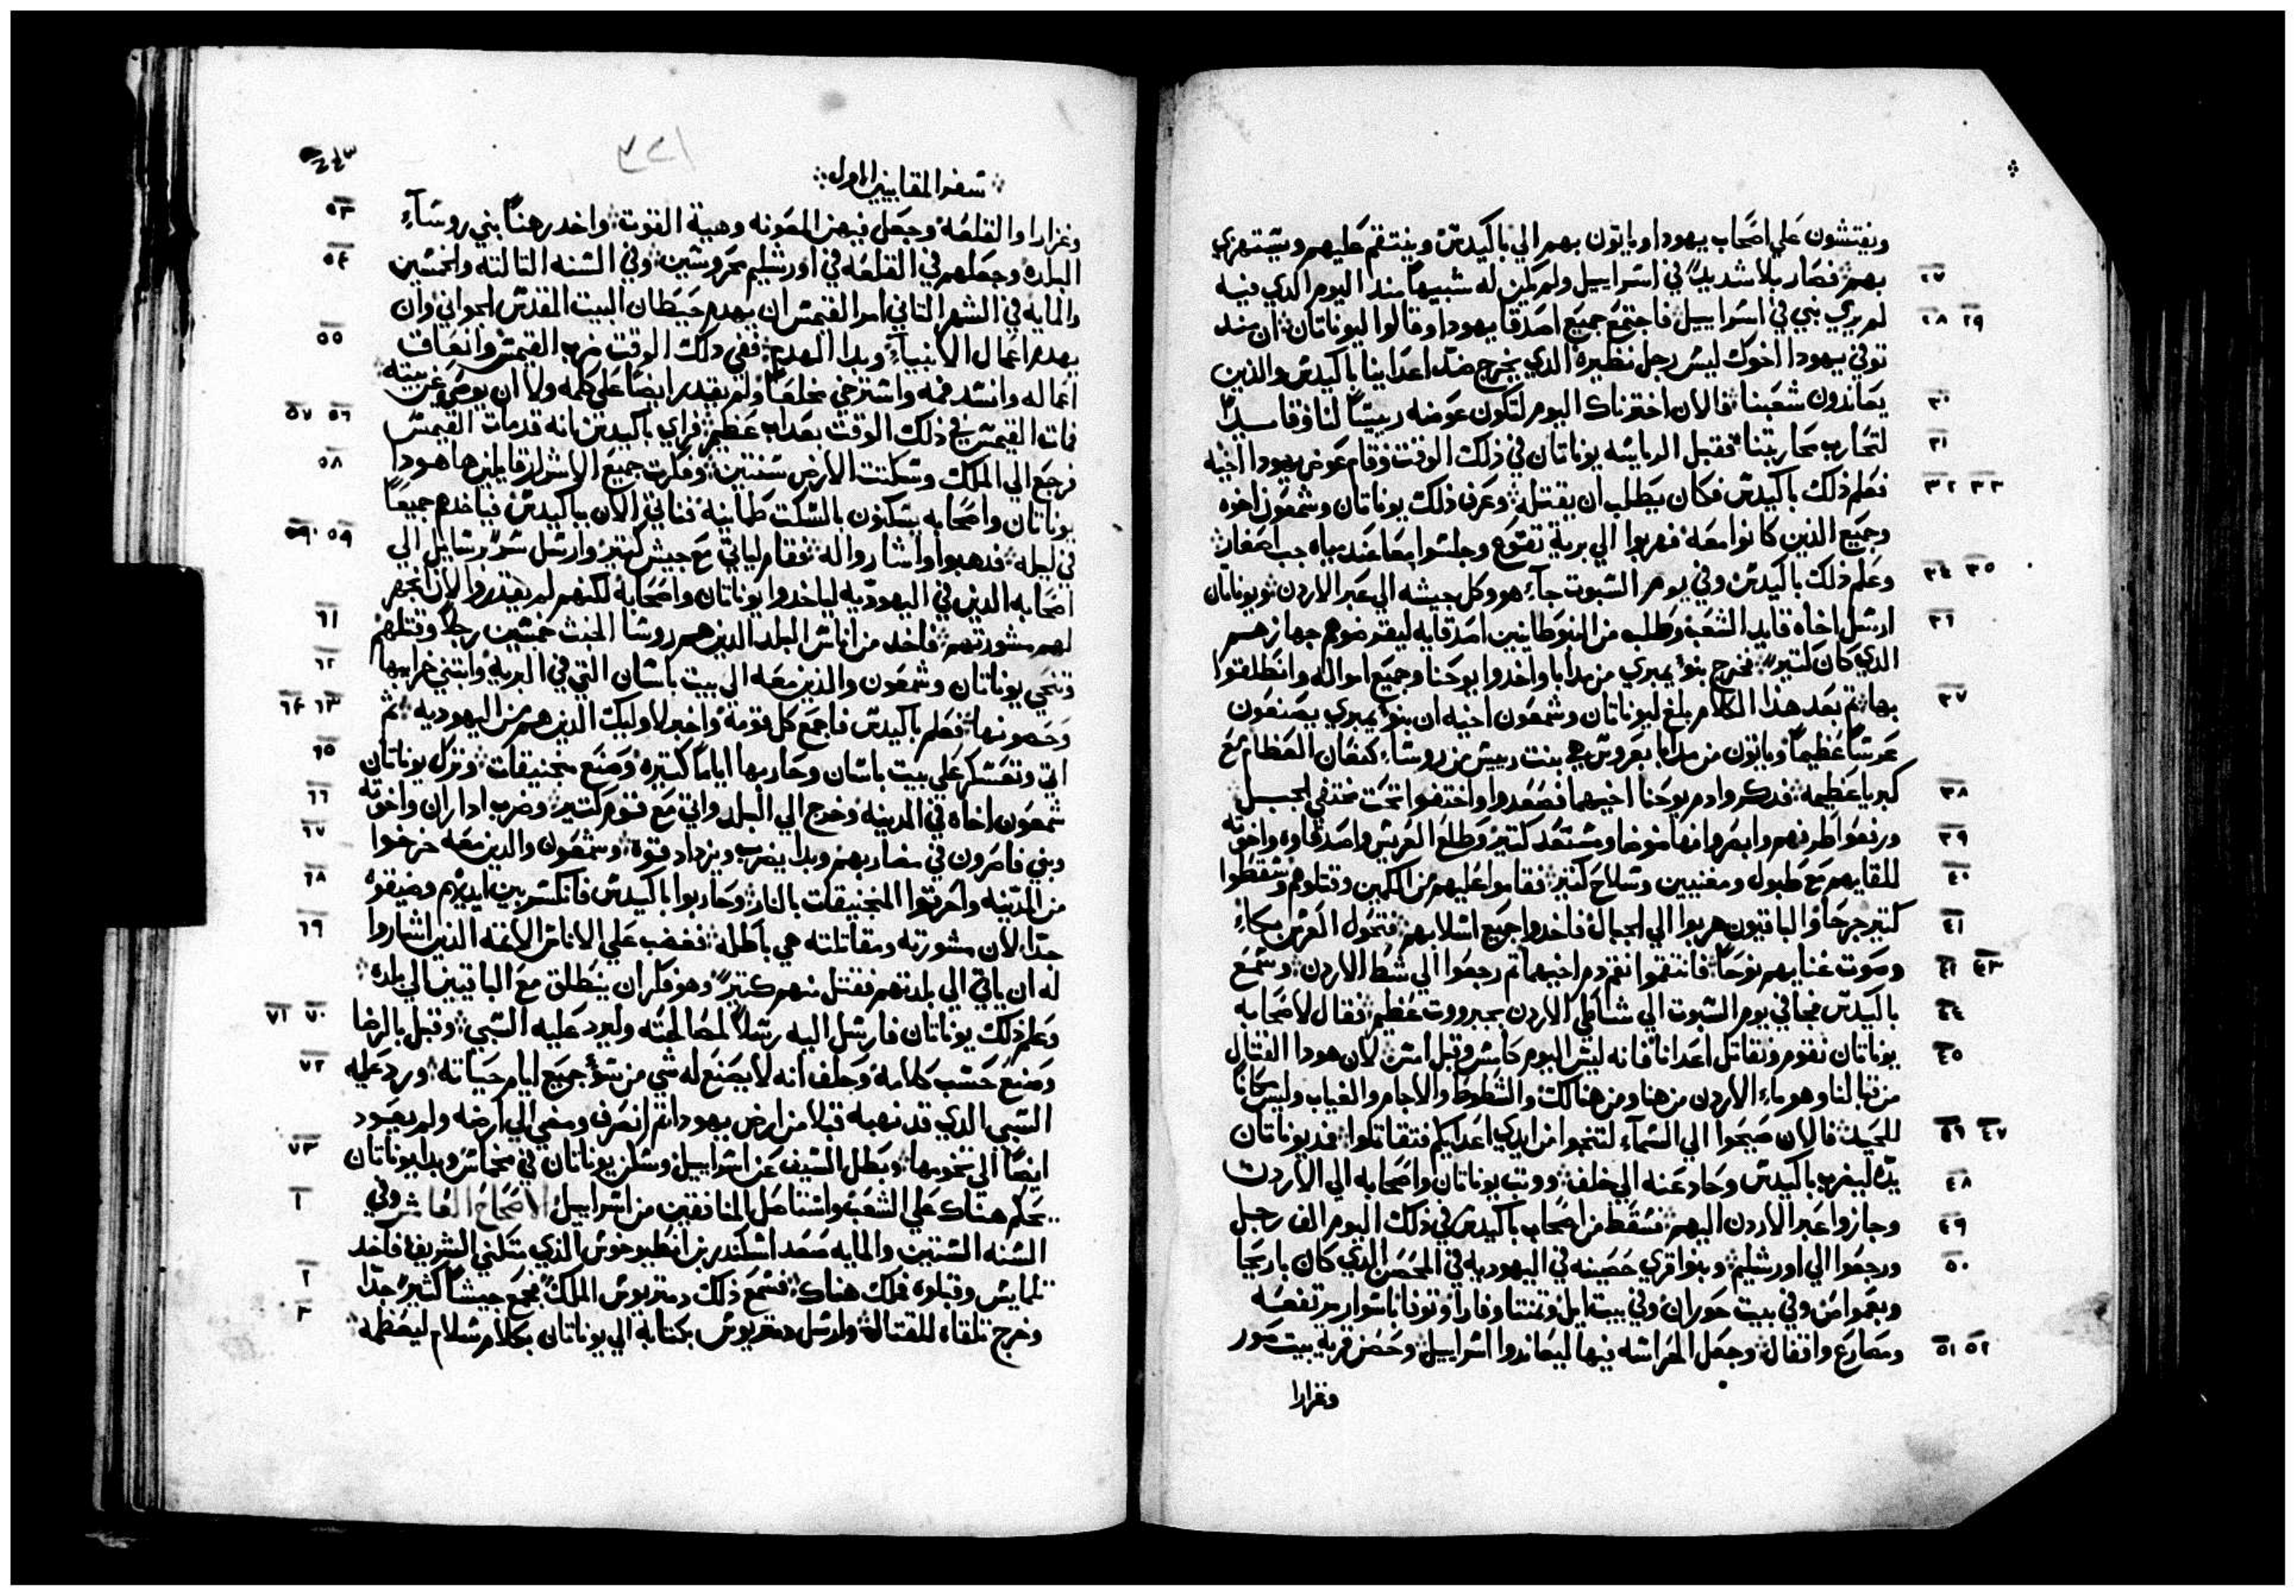 ويفتشون علي اصحاب يهودا وياتون بهم الي باكيدس وينتقم عليهم ويستهزي
٢٧ بهم فصار بلا شديدًا في اسراييل ولم يكن له شبيهًا مند اليوم الدي فيه
٢٨ ٢٩ لم يري نبي في اسراييل فاجتمع جميع اصدقا يهودا وقالوا ليوناتان ان مند
توفي يهودا اخوك ليس رجل نظيره الدي يخرج ضد اعداينا باكيدس والذين
٣٠ يعاندون شعبنا فالان اخترناك اليوم لتكون عوضه رييسًا لنا وقايدًا
٣١ لتحارب محاربتنا فقبل الرياسه يوناتان في ذلك الوقت وقام عوض يهودا اخيه
٣٢ ٣٣ فعلم ذلك باكيدس فكان يطلب ان يقتله وعرف ذلك يوناتان وشمعون اخوه
وجميع الذين كانوا معه فهربوا الي برية تقوع وجلسوا معا عند مياه جب اصفار
٣٤ ٣٥ وعلم ذلك باكيدس وفي يوم السبوت جآء هو وكل جيشه الي عبر الاردن ويوناتان
٣٦ ارسل اخاه قايد الشعب وطلب من النبوطانيين اصدقايه ليقرضوهم جهازهم
الدي كان كتيرًا فخرج بنو يمبري من مدابا واخدوا يوحنا وجميع امواله وانطلقوا
٣٧ بها تم بعد هذا الكلام بلغ ليوناتان وشمعون اخيه ان بنو يمبري يصنعون
عرسًا عظيمًا وياتون من مدابا بعروس هي بنت رييس من روساء كنعان العظام مع
٣٨ كبريا عظيمه فدكروا دم يوحنا اخيهما فصعدوا واختفوا تحت مختفي الجبل
٣٩ ورفعوا طرفهم وابصروا فها ضوضا ومستعد كتير وطلع العريس واصدقاوه واخوته
٤٠ للقايهم مع طبول ومغنيين وسلاح كتير فقاموا عليهم من الكمين وقتلوهم وسقطوا
٤١ كتير جرحا والباقيون هربوا الي الجبال فاخدوا جميع اسلابهم فتحول العرس بكاء
٤٢ ٤٣ وصوت غنايهم نوحًا فانتقموا نقم دم اخيهما تم رجعوا الي شط الاردن وسمع
٤٤ باكيدس فجا في يوم السبوت الي شاطي الاردن بجبروت عظيم فقال لاصحابه
٤٥ يوناتان نقوم ونقاتل اعدانا فانه ليس اليوم كامس وقبل امس لان هودا القتال
من قبالنا وهو ماء الاردن من هنا ومن هنالك والشطوط والاجام والغياب وليس مكانا
٤٦ ٤٧ للحيد فالان صيحوا الي السمآء لتنجوا من ايدي اعدايكم فتقاتلوا فمد يوناتان
٤٨ يده ليضرب باكيدس وحاد عنه الي خلف ووتب يوناتان واصحابه الي الاردن
٤٩ وجازوا عبر الاردن اليهم فسقط من اصحاب باكيدس في ذلك اليوم الف رجل
٥٠ ورجعوا الي اورشليم وبنوا قري حصينه في اليهوديه في المحصن الدي كان باريحا
وبعمواس وفي بيت حوران وفي بيت ايل وتمنتا وفارا وتوفا باسوار مرتفعه
٥١ ٥٢ ومصارع واقفال وجعل الحراسه فيها ليعاندوا اسراييل وحصن قرية بيت صور
وغزارا
سفر المقابيين الاول
٥٣ وغزارا والقلعه وجعل فيهن المعونه وهبة القوت واخد رهنًا بني روسآء
٥٤ البلده وجعلهم في القلعه في اورشليم محروسين وفي السنه التالته والخمسين
والمايه في الشهر التاني امر القيمس ان يهدم حيطان البيت المقدس الجواني وان
٥٥ يهدم اعمال الانبياء وبدا الهدم ففي ذلك الوقت ضرب القيمس وانعاف
اعماله وانسد فمه واسترخي مخلعًا ولم يقدر ايضًا علي كلمه ولا ان يوصي عن بيته
٥٦ ٥٧ فمات القيمس في ذلك الوقت بعداب عظيم فراي باكيدس انه قد مات القيمس
٥٨ فرجع الي الملك وسكنت الارض سنتين وفكرت جميع الاشرار قايلين ها هودا
يوناتان واصحابه يسكنون بالسكت طمانينه فناتي الان بباكيدس فياخدهم جميعًا
٥٩ ٦٠ في ليله فدهبوا واشاروا له فقام لياتي مع جيش كتير وارسل سرًا رسايل الي
اصحابه الدين في اليهوديه لياخدوا يوناتان واصحابه لكنهم لم يقدروا لان ظهر
٦١ لهم مشورتهم فاخد من اناس البلد الدين هم روسا الخبت خمسين رجلًا وقتلهم
٦٢ وتنحي يوناتان وشمعون والذين معه الي بيت باسان التي في البريه وابتني خرابها
٦٣ ٦٤ وحصونها فعلم باكيدس فاجمع كل قومه واخبر لاوليك الدين هم من اليهوديه تم
٦٥ اتي وتعسكر علي بيت باسان وحاربها اياما كتيره وصنع منجنيقات وترك يوناتان
٦٦ شمعون اخاه في المدينه وخرج الي البلد واتي مع قوم كتير وضرب اداران واخوته
٦٧ وبني فاصرون في مضاربهم وبدا يضرب ويزداد قوة وشمعون والدين معه خرجوا
٦٨ من المدينه واحرقوا المنجنيقات بالنار وحاربوا باكيدس فانكسر بين ايديهم وضيقوه
٦٩ جدًا لان مشورته ومقاتلته هي باطله فغضب علي الاناس الاتمه الذين اشاروا
له ان ياتي الي بلدتهم فقتل منهم كتيرًا وهو فكر ان ينطلق مع الباقيين الي بلده
٧٠ ٧١ وعلم ذلك يوناتان فارسل اليه رسلًا لمصالحته وليرد عليه السبي وقبل بالرضا
٧٢ وصنع حسب كلامه وحلف انه لا يصنع له شي من سوء جميع ايام حياته ورد عليه
السبي الدي قد نهبه قبلا من ارض يهودا تم انصرف ومضي الي ارضه ولم يعود
٧٣ ايضًا الي تخومها وبطل السيف عن اسراييل وسكن يوناتان في مخماس وبدا يوناتان
١ يحكم هناك علي الشعب واستاصل المنافقين من اسراييل الاصحاح العاشر وفي
السنه الستين والمايه صعد اسكندر بن انطيوخوس الذي متكني الشريف فاخد
٢ تلمايس وقبلوه فملك هناك فسمع ذلك دمتريوس الملك فجمع جيشًا كثيرًا جدًا
٣ وخرج تلقاه للقتال وارسل دمتريوس بكتابه الي يوناتان بكلام سلام ليعظمه